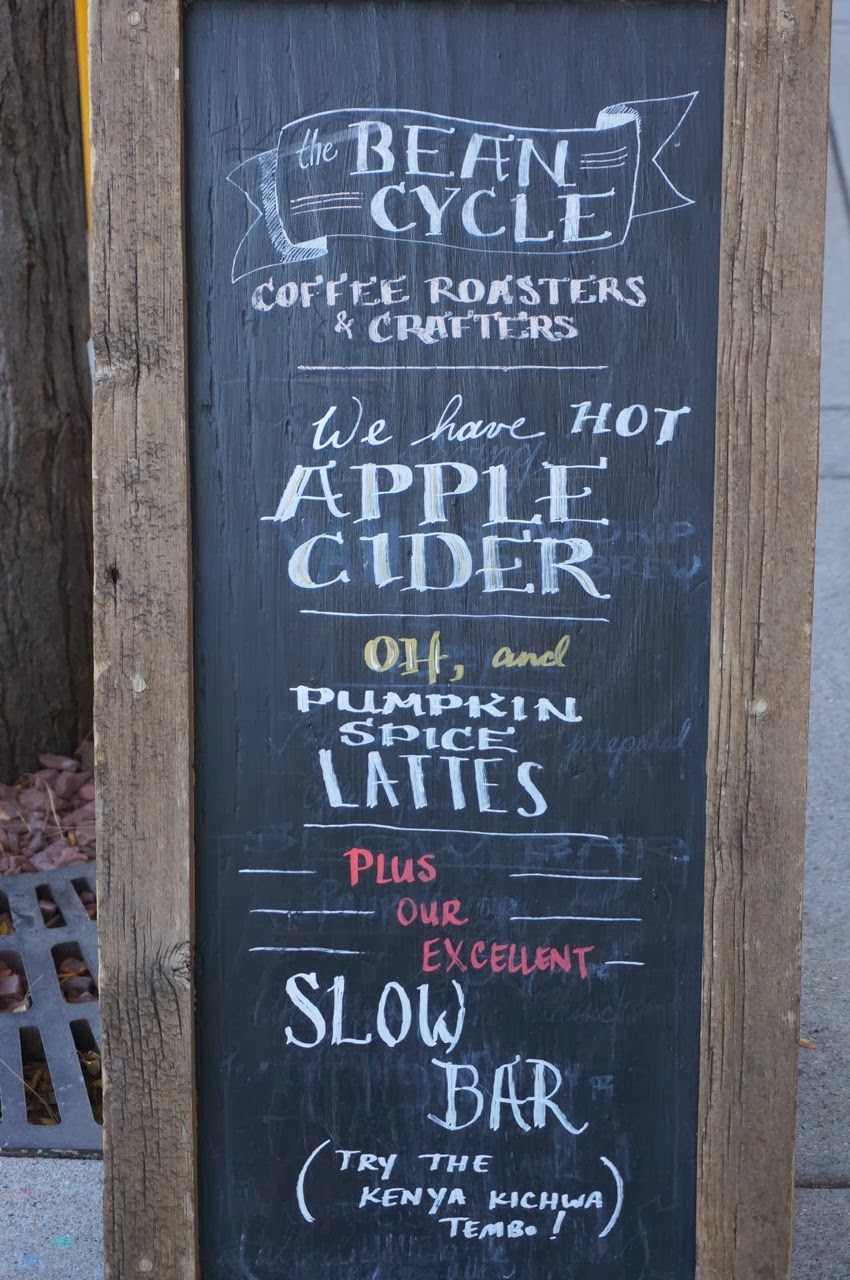 the BEAN
CYCLE
COFFEE ROASTERS
& CRAFTERS
We have HOT
APPLE
CIDER
DRIP
BREW
OH, and
PUMPKIN
SPICE
prepared
LATTES
SLOW BAR
PLUS
OUR
EXCELLENT
SLOW
BAR
(TRY THE
KENYA KICHWA
TEMBO!)